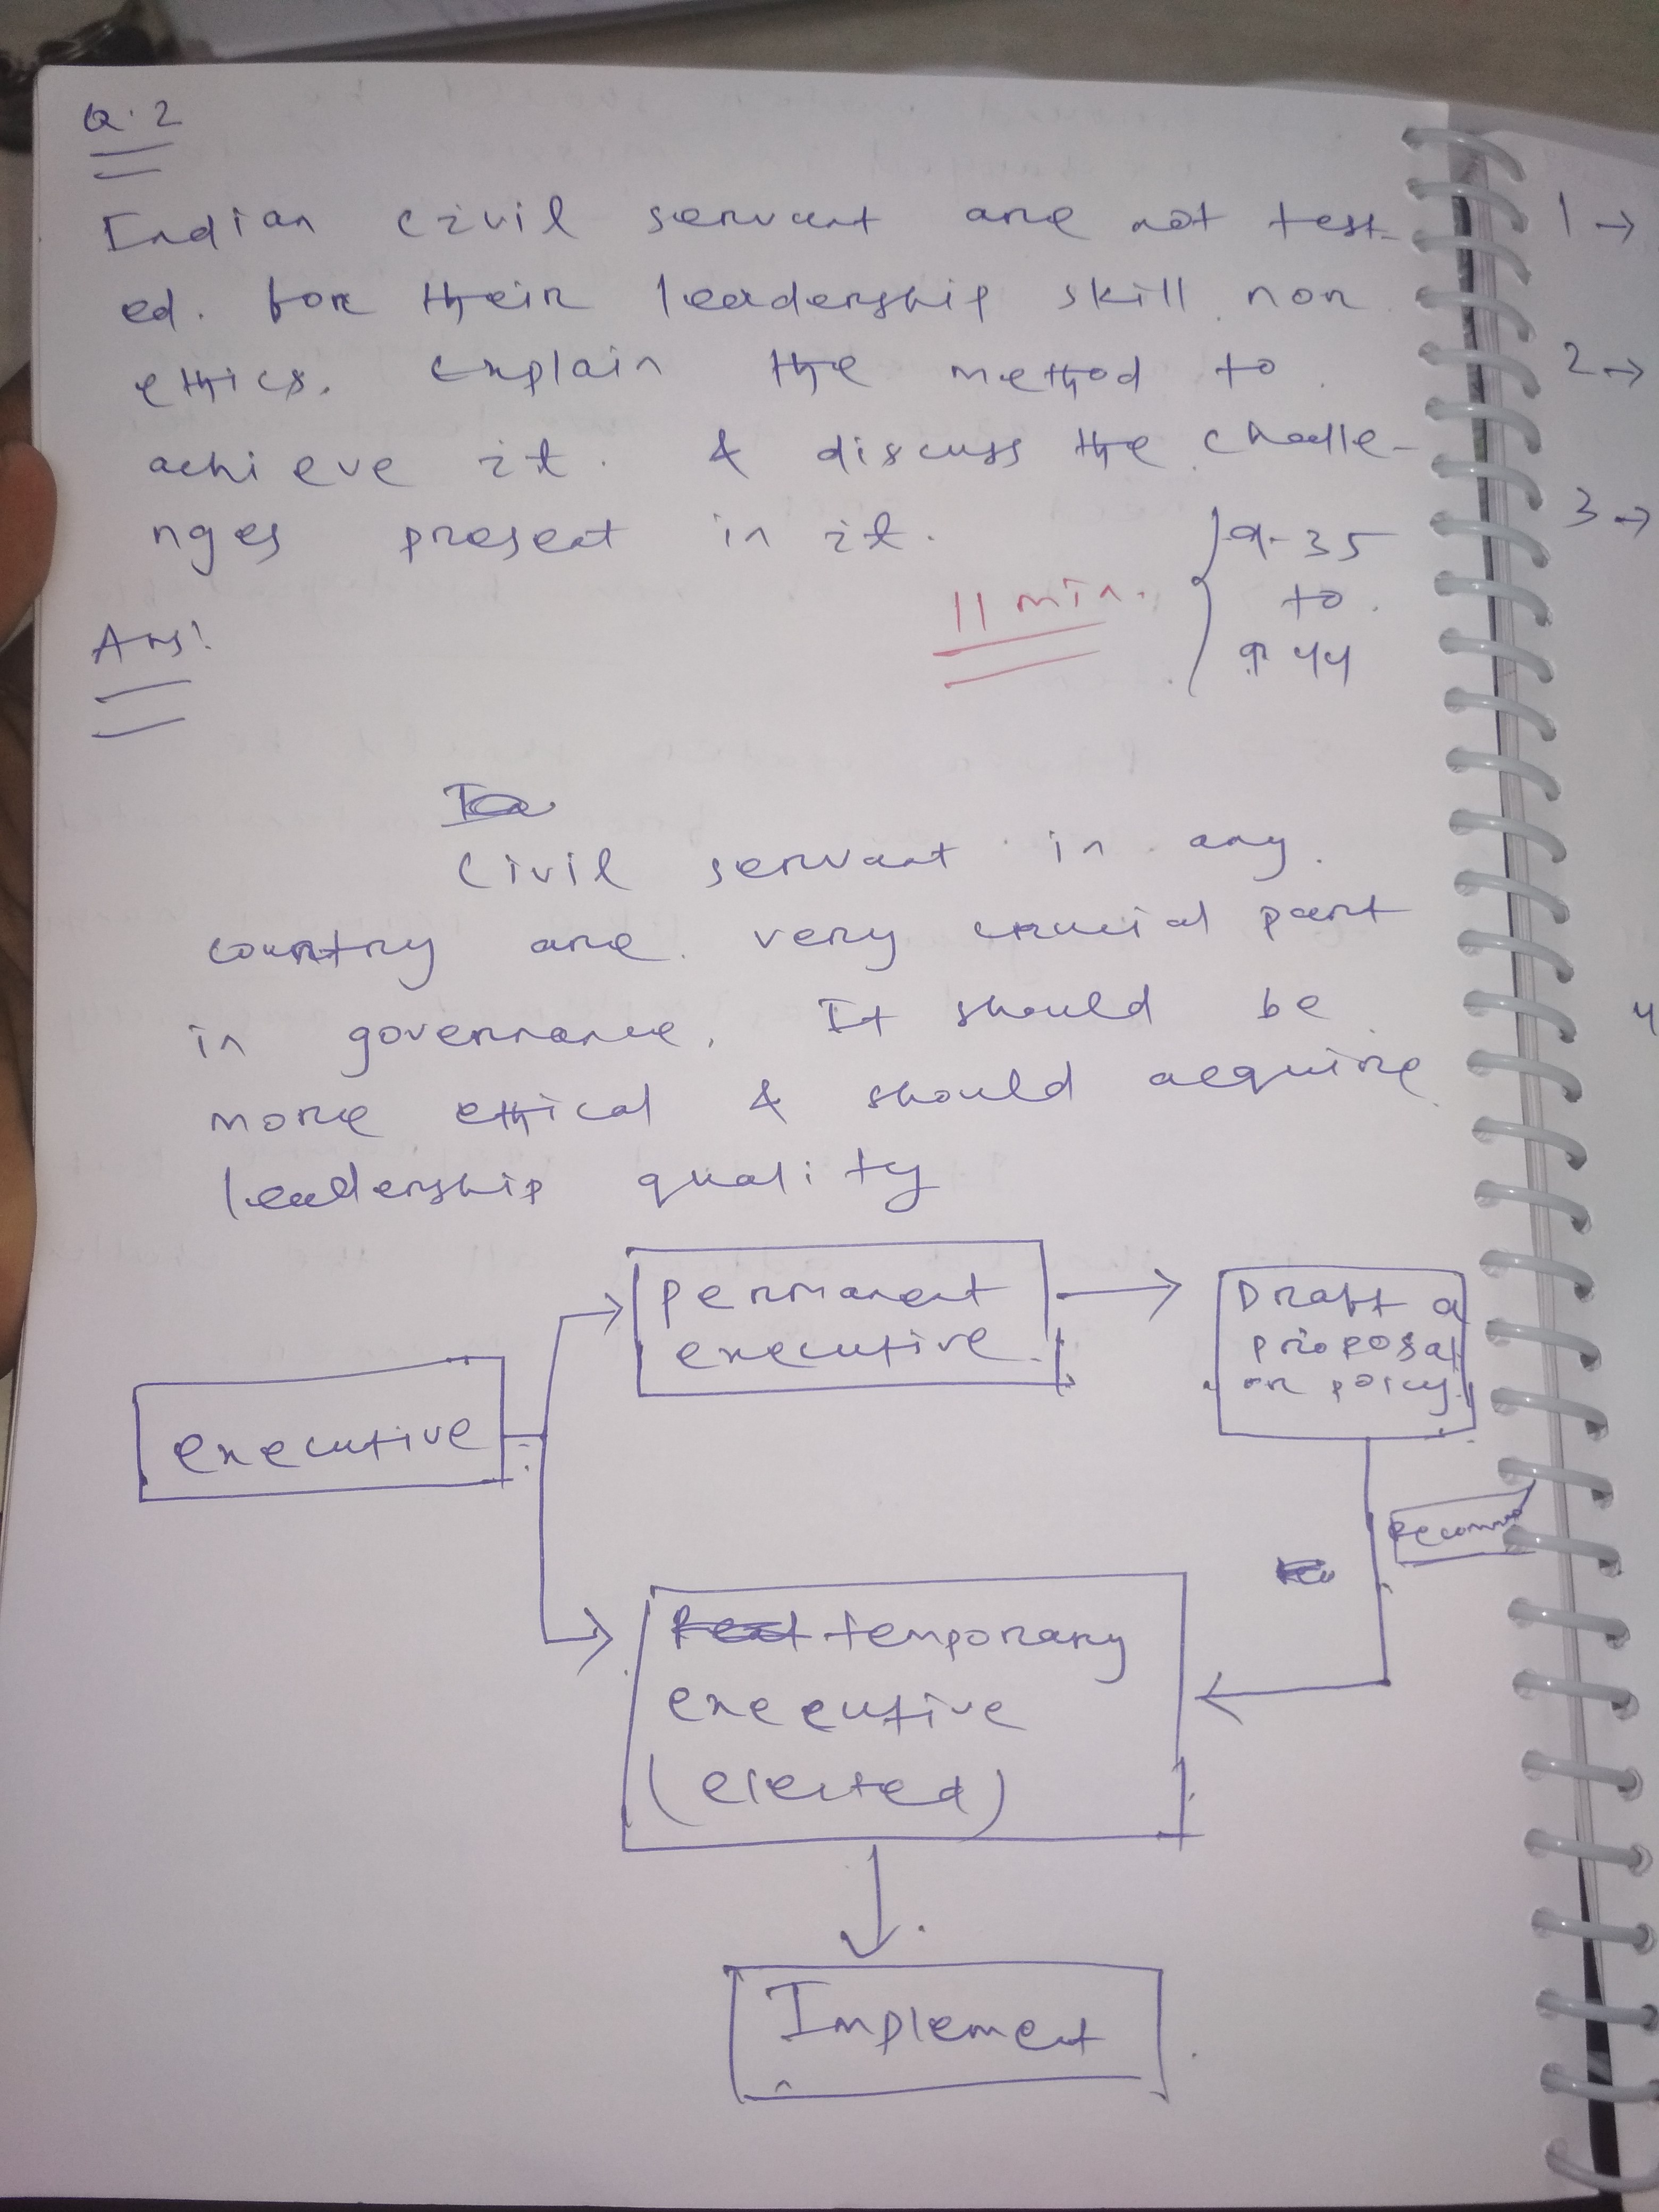 Q.2
Indian civil servant are not test-
ed. for their leadership skill nor
ethics. Explain the method to
achieve it. & discuss the challe-
nges present in it.
9-35
to
9 44
11 min.
Ans:
Civil servant in any
country are very crucial part
in governance. It should be
more ethical & should acquire
leadership quality
permanent
executive
Draft a
proposal
or policy
executive
Recomm
temporary
executive
(elected)
Implement
1 →
2 →
3 →
4